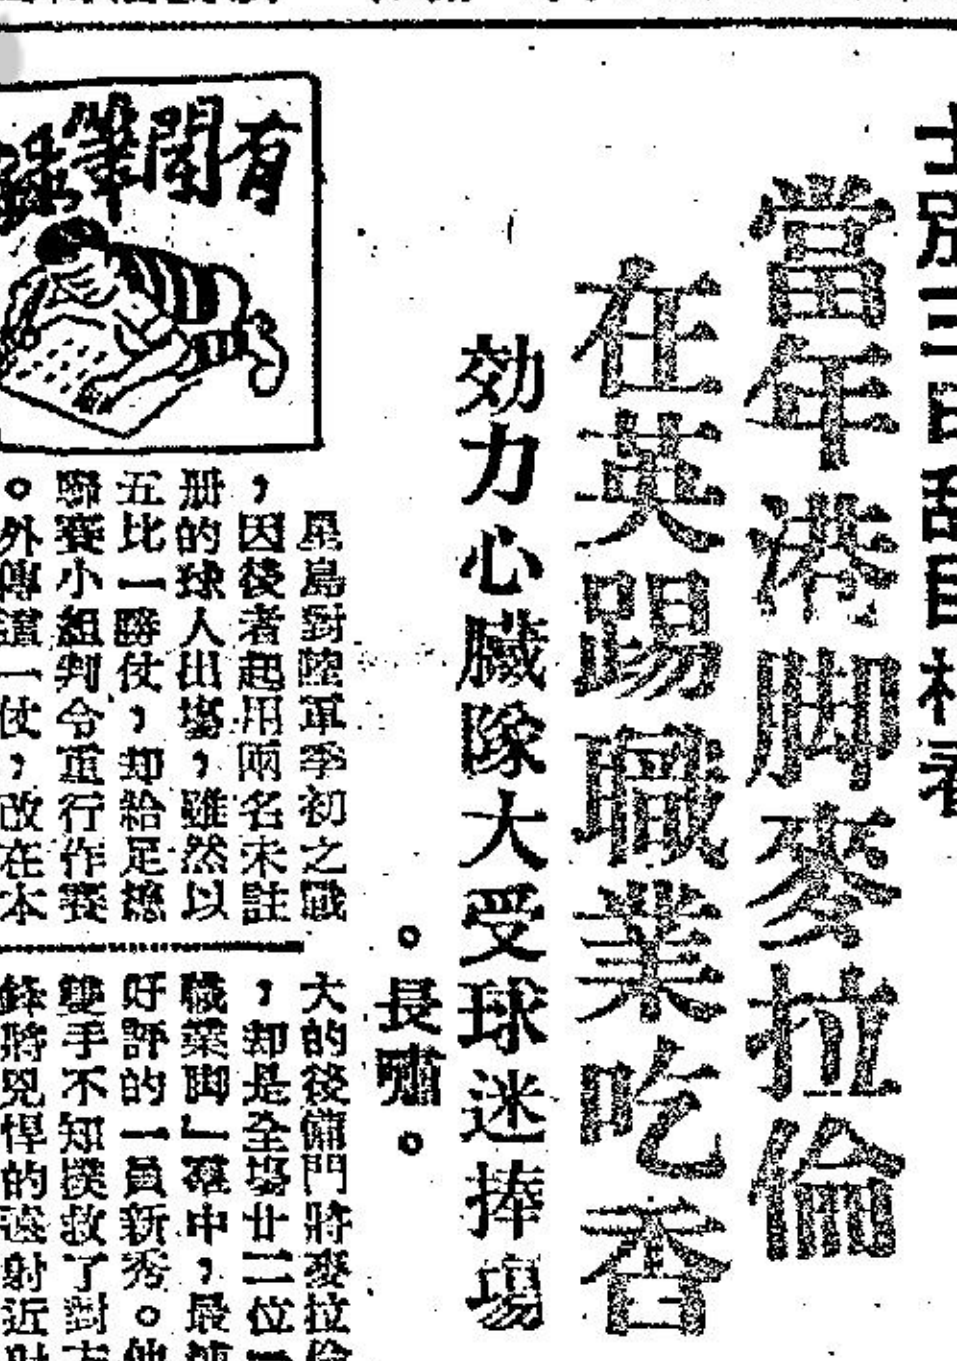 士別三日刮目相看
當年港脚麥拉倫
在英踢職業吃香
効力心臟隊大受球迷捧場
。長嘯。
有聞筆錄
星島對陸軍季初之戰
，因後者起用兩名未註
册的球人出塲，雖然以
五比一勝仗，却給足總
聯賽小組判令重行作賽
。外傳這一仗，改在本
大的後備門將麥拉倫
，却是全塲廿二位
職業脚」羣中，最
好評的一員新秀。他
雙手不知撲救了對
鋒將兇悍的遠射近